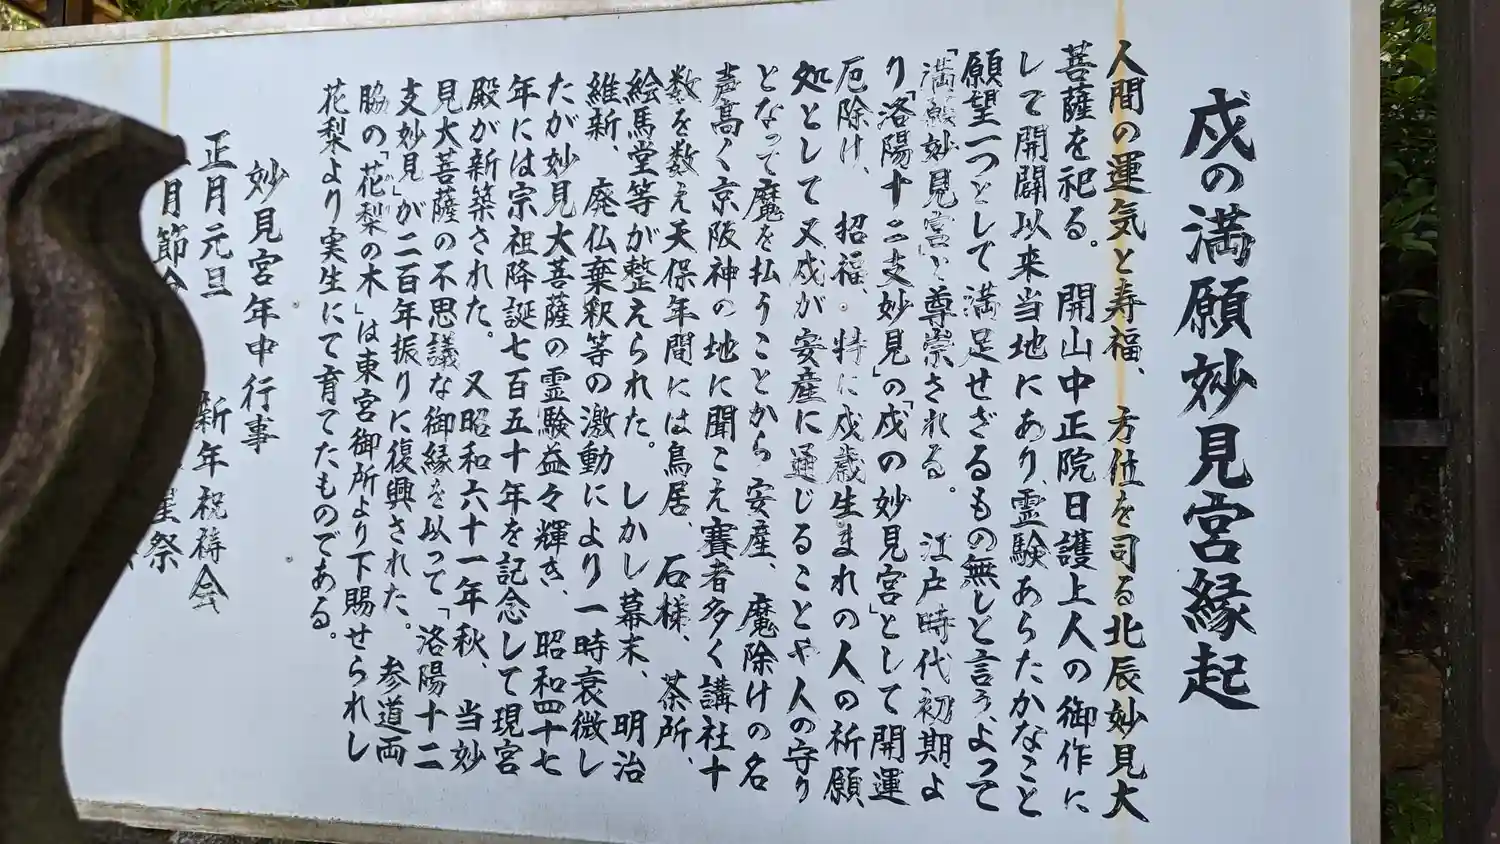 戌の満願妙見宮縁起
人間の運気と寿福、方位を司る北辰妙見大
菩薩を祀る。開山中正院日護上人の御作に
して開闢以来当地にあり、霊験あらたかなこと
願望一つとして満足せざるもの無しと言う、よって
「満願妙見宮」と尊崇される。江戸時代初期よ
り「洛陽十二支妙見」の「戌の妙見宮」として開運
厄除け、招福、特に戌歳生まれの人の祈願
処として又戌が安産に通じることや人の守り
となって魔を払うことから安産、魔除けの名
声高く京阪神の地に聞こえ賽者多く講社十
数を数え天保年間には鳥居、石様、茶所、
絵馬堂等が整えられた。しかし幕末、明治
維新、廃仏棄釈等の激動により一時衰微し
たが妙見大菩薩の霊験益々輝き、昭和四十七
年には宗祖降誕七百五十年を記念して現宮
殿が新築された。又昭和六十一年秋、当妙
見大菩薩の不思議な御縁を以って「洛陽十二
支妙見」が二百年振りに復興された。参道両
脇の「花梨の木」は東宮御所より下賜せられし
花梨より実生にて育てたものである。
妙見宮年中行事
正月元旦 新年祝祷会
月節会 星祭